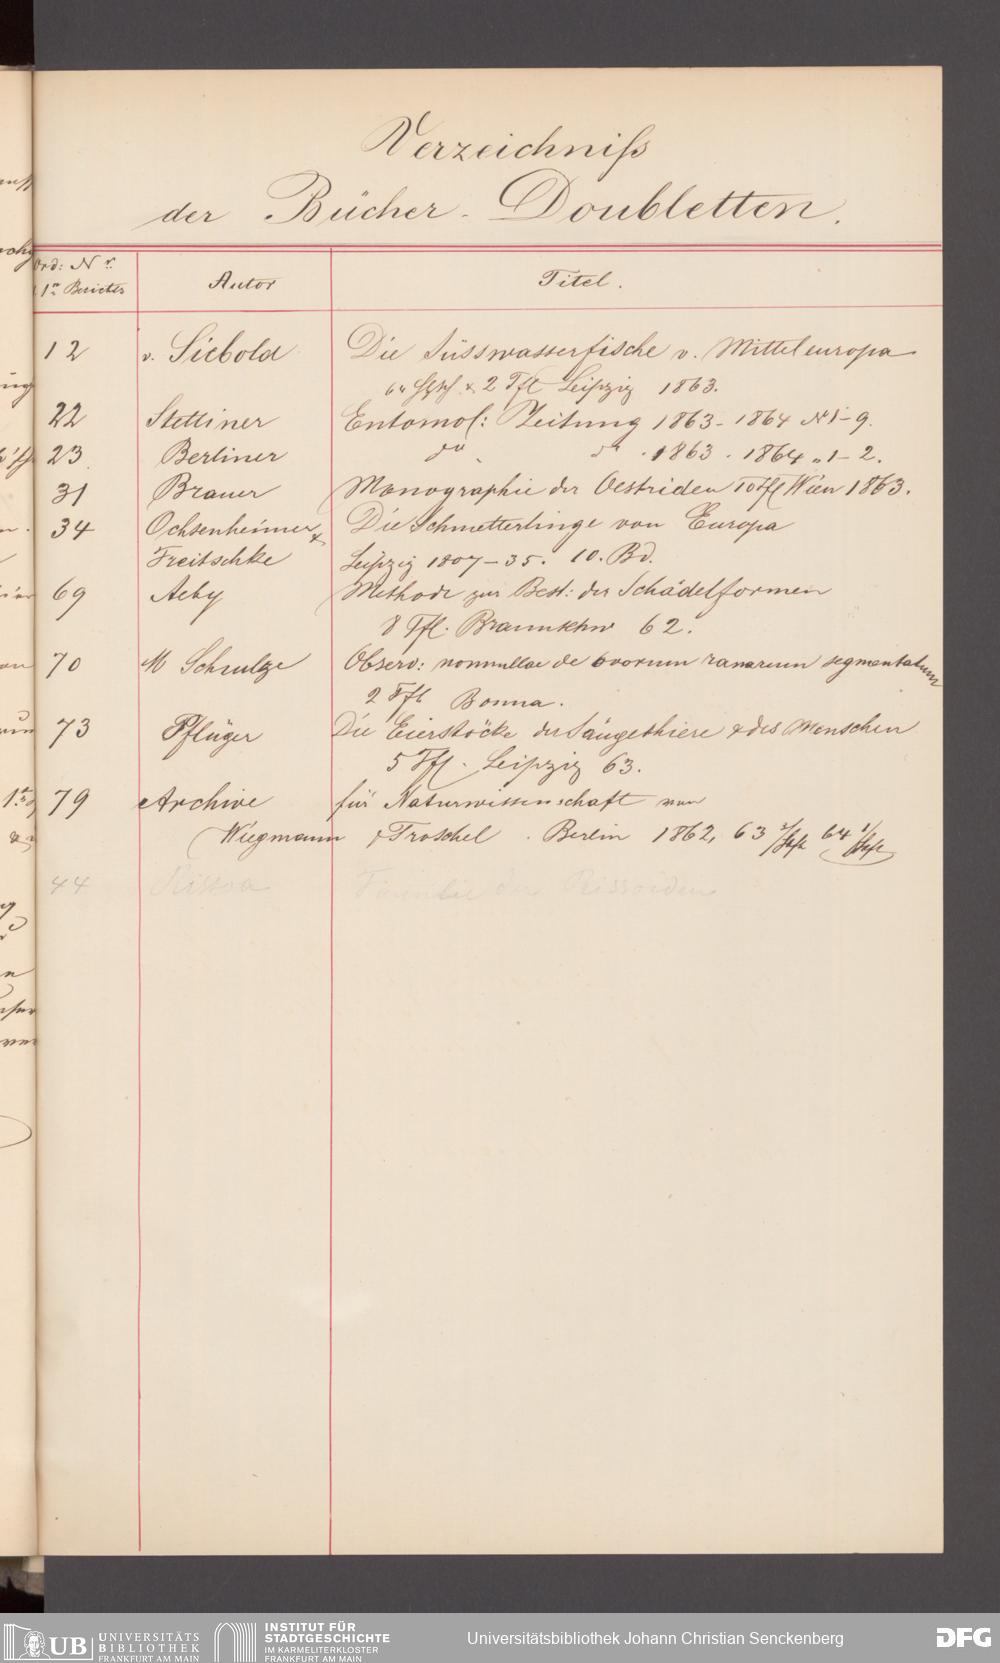 Verzeichniß
der Bücher-Doubletten.
Ord: Nr. Autor Titel.
1n Berichts
12 v. Siebold Die Süsswasserfische v. Mitteleuropa
64 & 2 Tfl Leipzig 1863.
22 Stettiner Entomol: Zeitung 1863-1864 No 1-9.
23 Berliner do do 1863. 1864 „ 1-2.
31 Brauer Monographie der Oestriden 10 Tfl Wien 1863.
34 Ochsenheimer & Die Schmetterlinge von Europa
Treitschke Leipzig 1807-35. 10. Bd.
69 Aeby Methode zur Best: der Schädelformen
8 Tfl. Braunschw 62.
70 M Schultze Observ: nonnullae de ovorum ranarum segmentatum
2 Tfl Bonna.
73 Pflüger Die Eierstöcke der Säugethiere & des Menschen
5 Tfl. Leipzig 63.
79 Archive für Naturwissenschaft von
Wiegmann & Troschel. Berlin 1862, 63 64
44 Rissoa Familie der Rissoiden
UB UNIVERSITÄTS
BIBLIOTHEK
FRANKFURT AM MAIN
INSTITUT FÜR
STADTGESCHICHTE
IM KARMELITERKLOSTER
FRANKFURT AM MAIN
Universitätsbibliothek Johann Christian Senckenberg
DFG